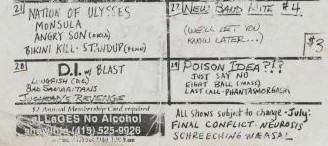 21 NATION OF ULYSSES
MONSULA
ANGRY SON (OKLA)
BIKINI KILL · STANDUP (PENN)
27 NEW BAND NITE #4
(WE'LL LET YOU
KNOW LATER...)
$3
28 D.I. W/ BLAST
LUNGFISH (D.C.)
BAD SAMARITANS
JUGHEAD'S REVENGE
29 POISON IDEA?!?
JUST SAY NO
EIGHT BALL (MASS)
LAST CALL · PHANTASMORGASM
$2 Annual Membership Card required
ALLAGES No Alcohol
(415) 525-9926
All shows subject to change · July:
FINAL CONFLICT NEUROSIS
SCHREECHING WEASAL!